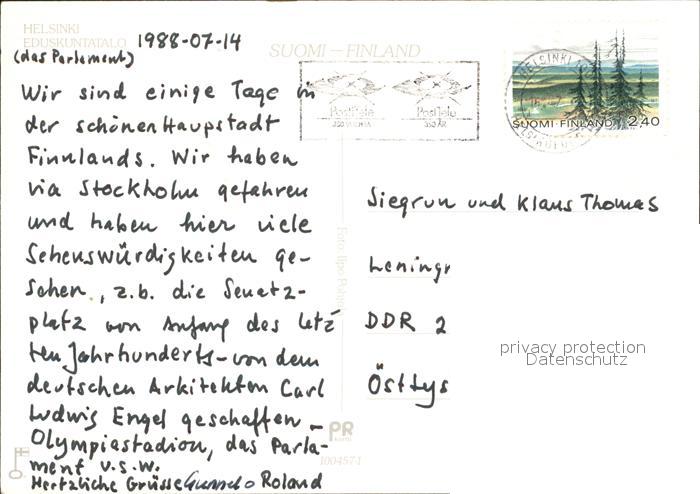 HELSINKI
EDUSKUNTATALO 1988-07-14
(das Parlament)
SUOMI – FINLAND
Wir sind einige Tage in
der schönen Haupstadt
Finnlands. Wir haben
via Stockholm gefahren
und haben hier viele
Sehenswürdigkeiten ge-
sehen, z.b. die Senatz-
platz von Anfang des letz
ten Jahrhunderts – von dem
deutschen Arkitekten Carl
Ludwig Engel geschaffen –
Olympiastadion, das Parla-
ment u.s.w.
Hertzliche Grüsse Roland
PostiTele PostiTele
350 VUOTTA 350 ÅR
HELSINKI
SUOMI-FINLAND 2,40
Siegrun und Klaus Thomas
Leningr
DDR 2
Östtys
privacy protection
Datenschutz
PR
100457-1